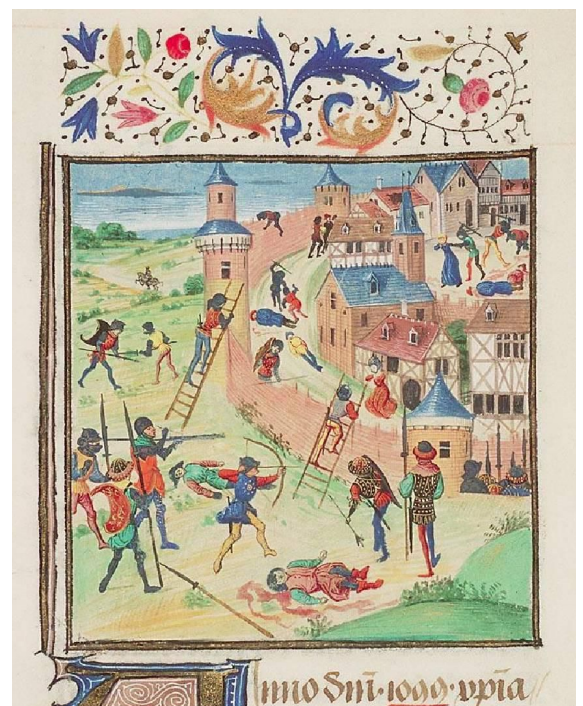 Anno dm̄·1099·xpīa